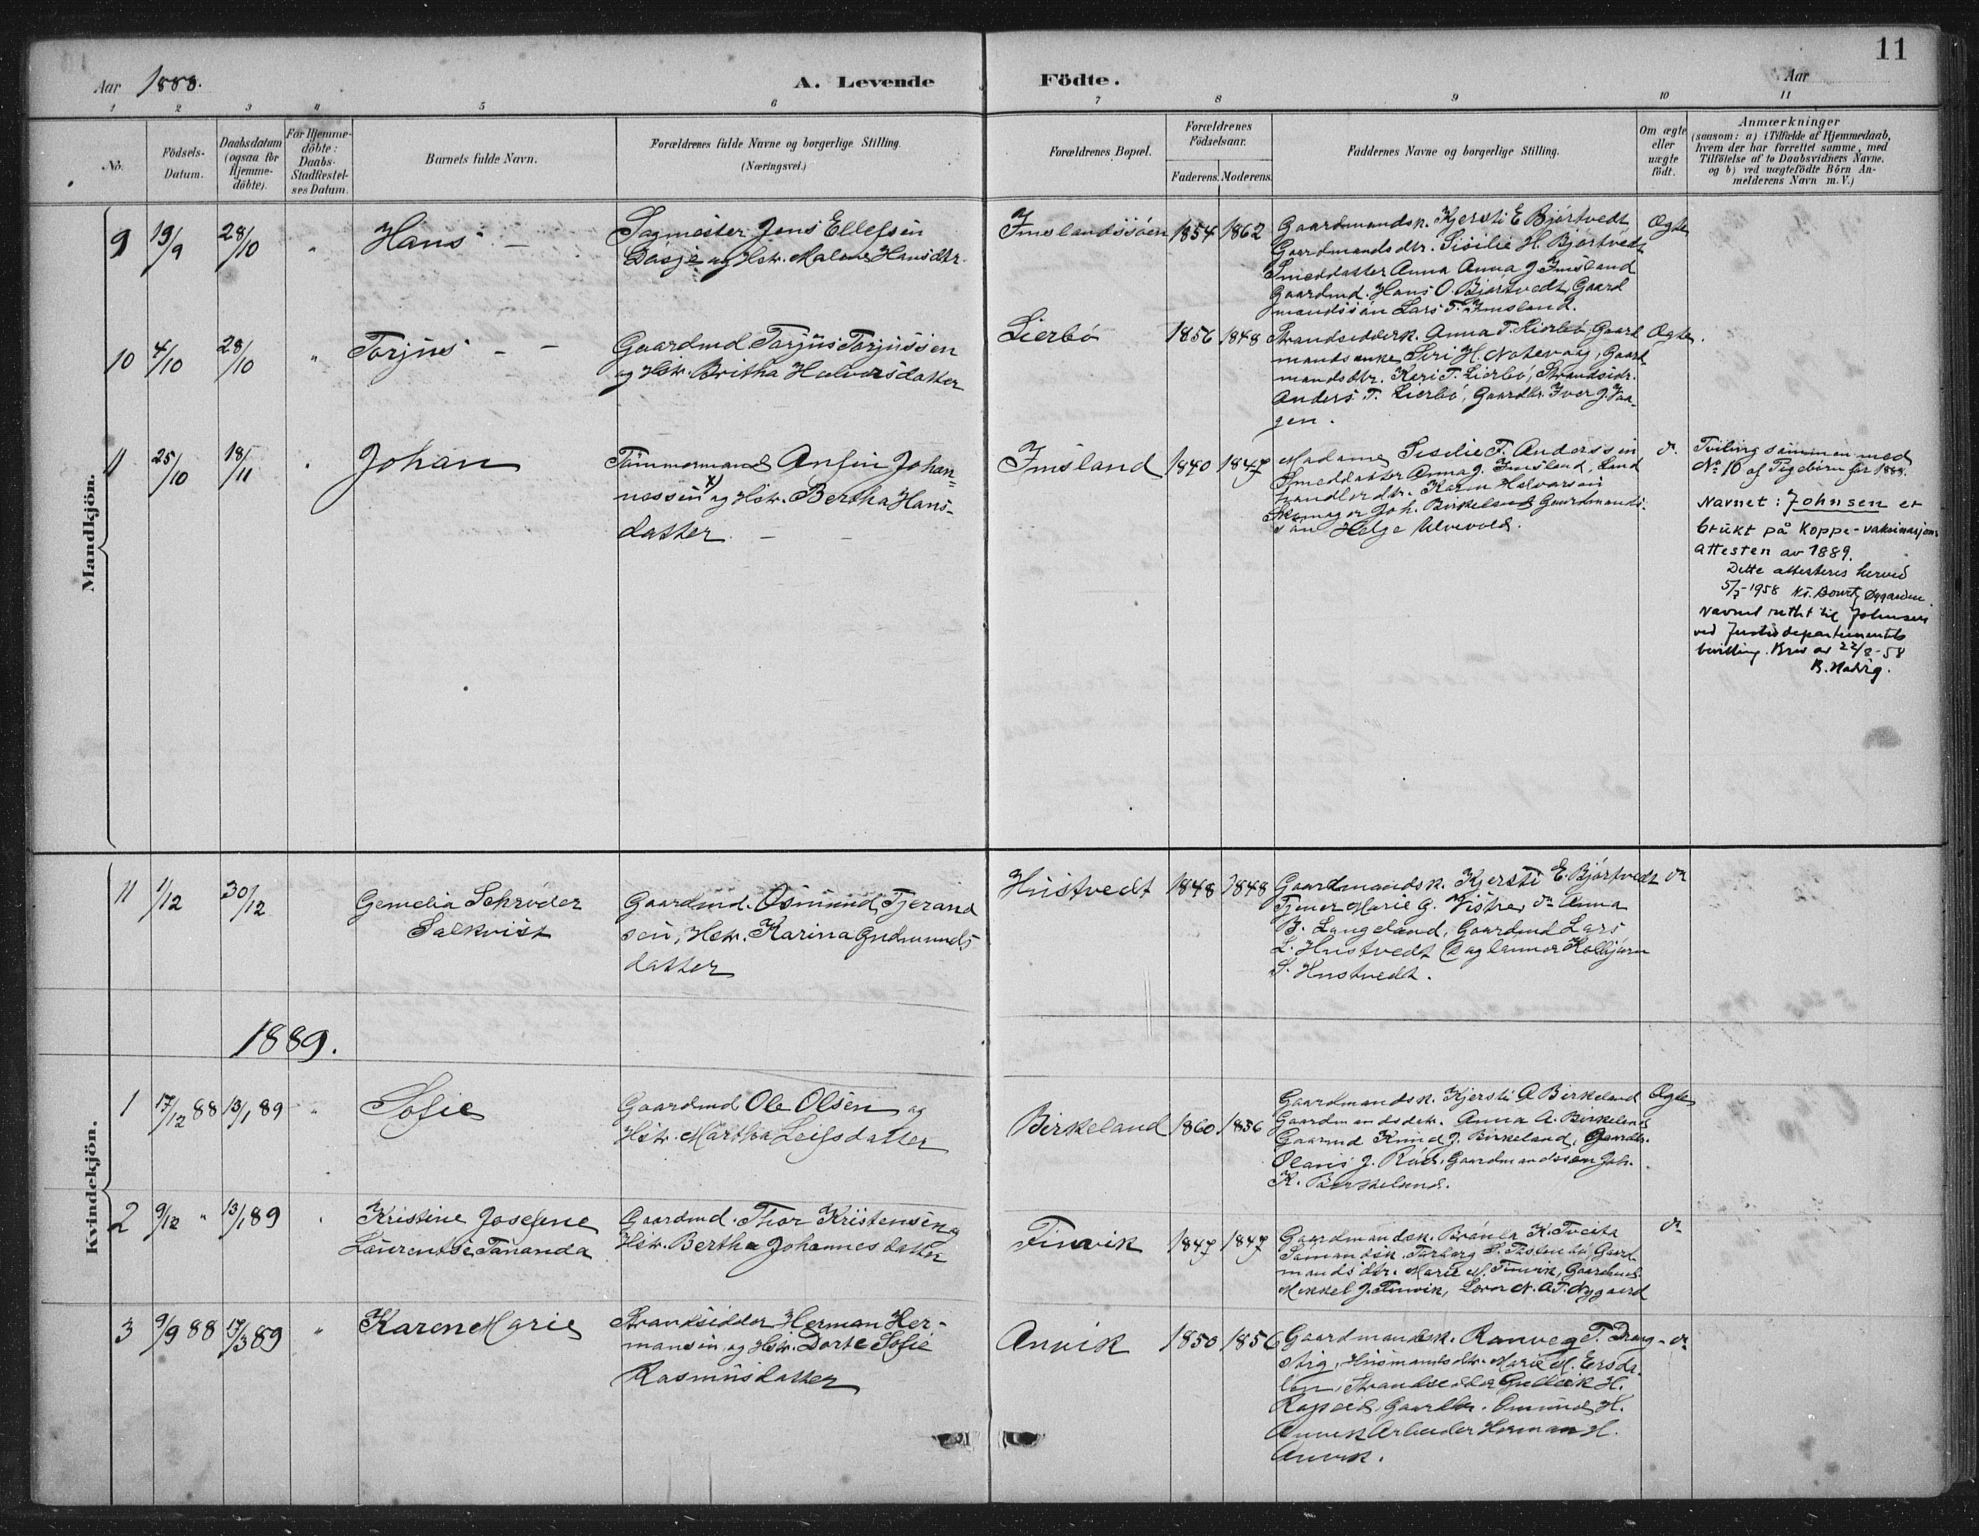 11
Aar 1888.
A. Levende Födte.
Aar
1 2 3 4 5 6 7 8 9 10 11
No.
Födsels-Datum.
Daabsdatum (ogsaa for Hjemme-döbte).
For Hjemme-döbte: Daabs-Stadfæstel-ses Datum.
Barnets fulde Navn.
Forældrenes fulde Navne og borgerlige Stilling. (Næringsvei.)
Forældrenes Bopæl.
Forældrenes Födselsaar.
Faderens. Moderens.
Faddernes Navne og borgerlige Stilling.
Om ægte eller uægte födt.
Anmærkninger
(saasom: a) i Tilfælde af Hjemmedaab,
hvem der har forrettet samme, med
Tilföielse af to Daabsvidners Navne,
og b) ved uægtefödte Börn An-
melderens Navn m. V.)
Mandkjön.
9 19/9 28/10 " Hans
Sagmester Jens Ellefsen
og Hstr. Malene Hansdtr.
Imslandssjöen 1854 1862
Gaardmandsk. Kjersti E Bjørtvedt
Gaardmandsdtr. Sisilie H. Bjørtvedt
Smeddatter Anna Anna J Imsland
Gaardmd. Hans O. Bjørtvedt, Gaard
mandssön Lars T. Imsland.
Ægte
10 4/10 28/10 " Torjus
Gaardmd Torjus Torjussen
og Hstr. Britha Halvorsdatter
Lierbö 1856 1848
Strandsidderk. Anna T. Lierbö, Gaard
mandsenke Siri H. Notevaag, Gaard
mandsdtr. Kari T. Lierbö, Strandsidr.
Anders T. Lierbö, Gaardbr. Iver J. Vaa-
gen.
Ægte.
11 25/10 18/11 " Johan
Tömmermand Anfin Johan-
nessen x) og Hstr. Bertha Hans-
datter
Imsland 1840 1847
Madame Sesilie T. Anderssen
Smeddatter Anna J. Imsland, Land
handlerdtr. Karen Halvorsen
Skomager Joh. Birkeland Gaardmands-
sön Helge Ulvevold.
do
Tvilling sammen med
No 10 af Pigebörn for 1888.
Navnet: Johnsen er
brukt på koppe-vaksinasjons
attesten av 1889.
Dette attesteres herved
1958
Navnet rettet til Johnsen
ved Justisdepartementets
bevilling. Brev av 58
B. Hatvig.
Kvindekjön.
11 1/12 30/12
Gemelia Schröder
Salkvist
Gaardmd. Osmund Tjerand
sen, Hstr. Karina Gudmunds
datter
Hustvedt 1848 1848
Gaardmandsk. Kjersti E. Bjørtvedt
Tjener Marie G. Vistre, do Anna
B. Langeland, Gaardmd Lars
L. Hustvedt Daglönner Kolbjørn
S. Hustvedt.
do
1889.
1 17/12 88 13/1 89 " Sofie
Gaardmd Ole Olsen og
Hstr. Martha Leifsdatter
Birkeland 1860 1856
Gaardmandsk. Kjersti A Birkeland
Gaardmandsdtr. Anna A. Birkeland
Gaarmd Knud J. Birkeland, Gaardbr.
Olaus J. Röd, Gaardmandssön Joh.
K. Birkeland.
Ægte
2 9/12 " 13/1 89 "
Kristine Josefine
Laurentse Tananda
Gaardmd. Thor Kristensen og
Hstr. Bertha Johannesdatter
Finvik 1847 1847
Gaardmandsk. K. Tveita
Sömandsk. Torborg S. Gaard
mandsdtr. Marie M. Finvik, Gaardmd.
Mikkel J. Finvik, A. T. Nygaard
do
3 9/9 88 17/3 89 " Karen Marie
Strandsidder Herman Her-
mansen og Hstr. Dorte Sofie
Rasmusdatter
Anvik 1850 1856
Gaardmandsk. Ranveg T. Drang-
stig, Husmandsdtr. Marie M. Ersda-
len, Strandsidder Gulleik H.
Ropeid, Gaardbr. Omund H.
Anvik Arbeider Herman H.
Anvik.
do